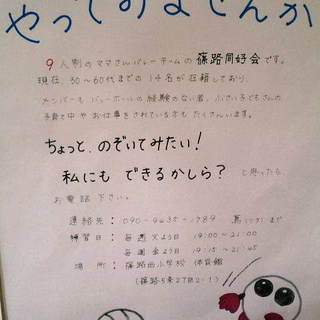 やってみませんか
9人制のママさんバレーチームの篠路同好会です。
現在、30～60代までの14名が在籍しており、
メンバーも バレーボールの経験のない者、小さい子どもさんの
子育て中や お仕事をされている方も たくさんいます。
ちょっと、のぞいてみたい！
私にも できるかしら？ と思ったら
お電話 下さい。
連絡先：090-9435-1789 まで
練習日：毎週 火よう日 19:00～21:00
毎週 金よう日 19:15～21:45
場所：篠路西小学校 体育館
(篠路5条2丁目2-1)